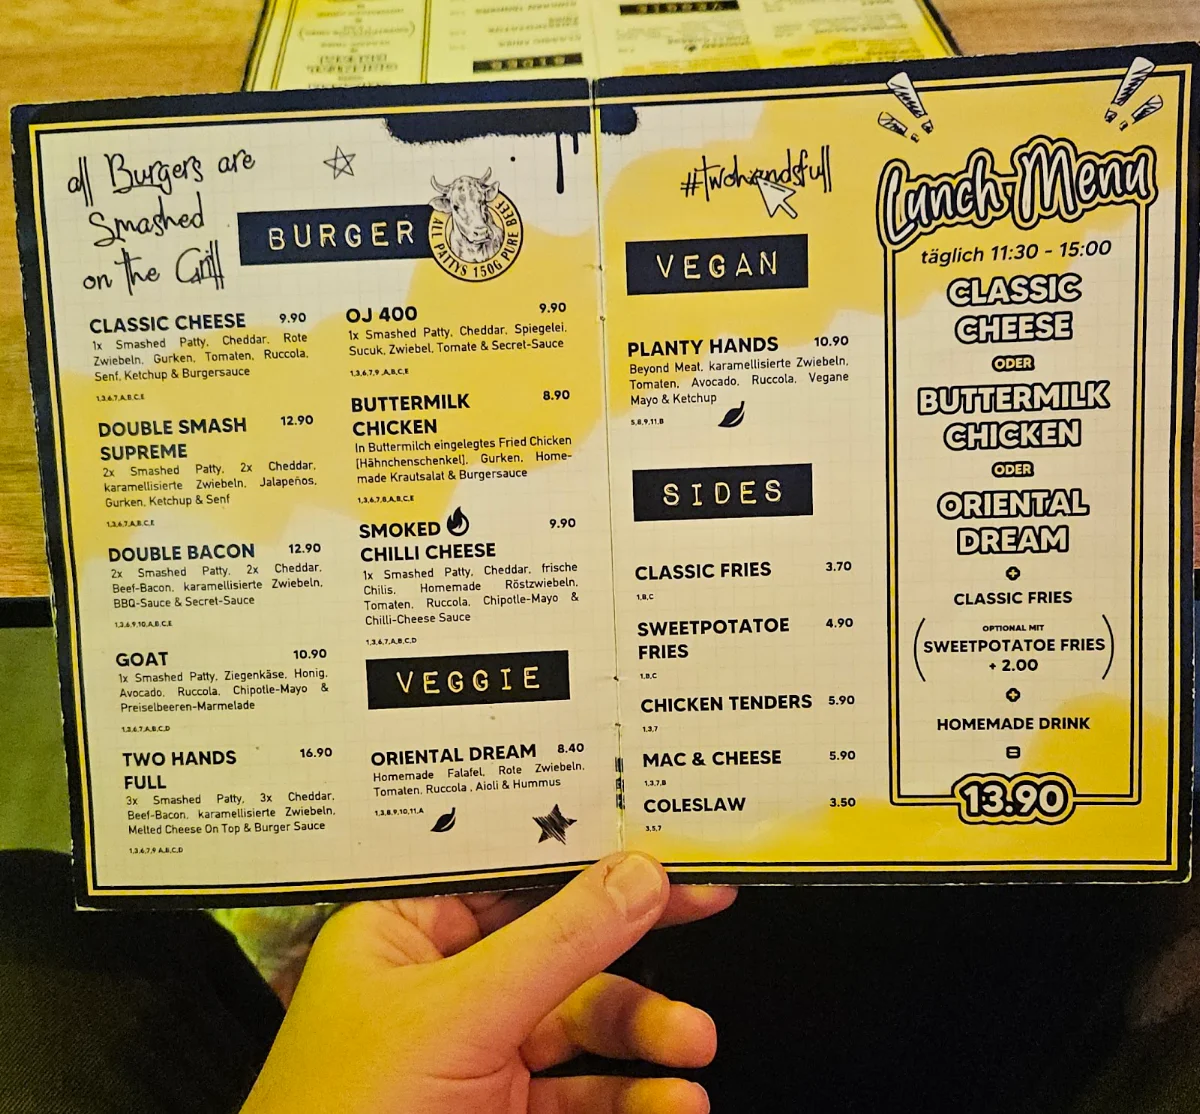 all Burgers are
Smashed
on the Grill
BURGER
ALL PATTYS 150G PURE BEEF
CLASSIC CHEESE 9.90
1x Smashed Patty, Cheddar, Rote
Zwiebeln, Gurken, Tomaten, Ruccola,
Senf, Ketchup & Burgersauce
1,3,6,7,A,B,C,E
DOUBLE SMASH 12.90
SUPREME
2x Smashed Patty, 2x Cheddar,
karamellisierte Zwiebeln, Jalapeños,
Gurken, Ketchup & Senf
1,3,6,7,A,B,C,E
DOUBLE BACON 12.90
2x Smashed Patty, 2x Cheddar,
Beef-Bacon, karamellisierte Zwiebeln,
BBQ-Sauce & Secret-Sauce
1,3,6,9,10,A,B,C,E
GOAT 10.90
1x Smashed Patty, Ziegenkäse, Honig,
Avocado, Ruccola, Chipotle-Mayo &
Preiselbeeren-Marmelade
1,3,6,7,A,B,C,D
TWO HANDS 16.90
FULL
3x Smashed Patty, 3x Cheddar,
Beef-Bacon, karamellisierte Zwiebeln,
Melted Cheese On Top & Burger Sauce
1,3,6,7,9 A,B,C,D
OJ 400 9.90
1x Smashed Patty, Cheddar, Spiegelei,
Sucuk, Zwiebel, Tomate & Secret-Sauce
1,3,6,7,9 ,A,B,C,E
BUTTERMILK 8.90
CHICKEN
In Buttermilch eingelegtes Fried Chicken
[Hähnchenschenkel], Gurken, Home-
made Krautsalat & Burgersauce
1,3,6,7,8,A,B,C,E
SMOKED 9.90
CHILLI CHEESE
1x Smashed Patty, Cheddar, frische
Chilis, Homemade Röstzwiebeln,
Tomaten, Ruccola, Chipotle-Mayo &
Chilli-Cheese Sauce
1,3,6,7,A,B,C,D
VEGGIE
ORIENTAL DREAM 8.40
Homemade Falafel, Rote Zwiebeln,
Tomaten, Ruccola , Aioli & Hummus
1,3,8,9,10,11,A
#twohandsfull
VEGAN
PLANTY HANDS 10.90
Beyond Meat, karamellisierte Zwiebeln,
Tomaten, Avocado, Ruccola, Vegane
Mayo & Ketchup
5,8,9,11,B
SIDES
CLASSIC FRIES 3.70
1,B,C
SWEETPOTATOE 4.90
FRIES
1,B,C
CHICKEN TENDERS 5.90
1,3,7
MAC & CHEESE 5.90
1,3,7,B
COLESLAW 3.50
3,5,7
Lunch Menu
täglich 11:30 - 15:00
CLASSIC
CHEESE
ODER
BUTTERMILK
CHICKEN
ODER
ORIENTAL
DREAM
+
CLASSIC FRIES
OPTIONAL MIT
(SWEETPOTATOE FRIES)
+ 2.00
+
HOMEMADE DRINK
=
13.90